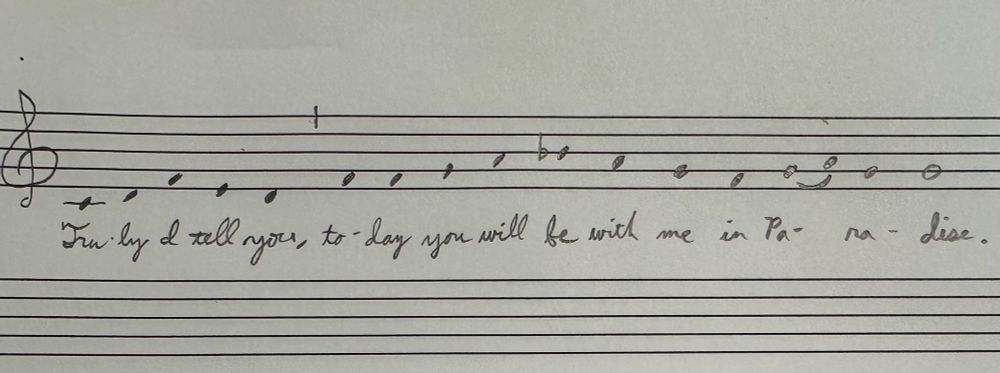 Tru-ly I tell you, to-day you will be with me in Pa- ra- dise.